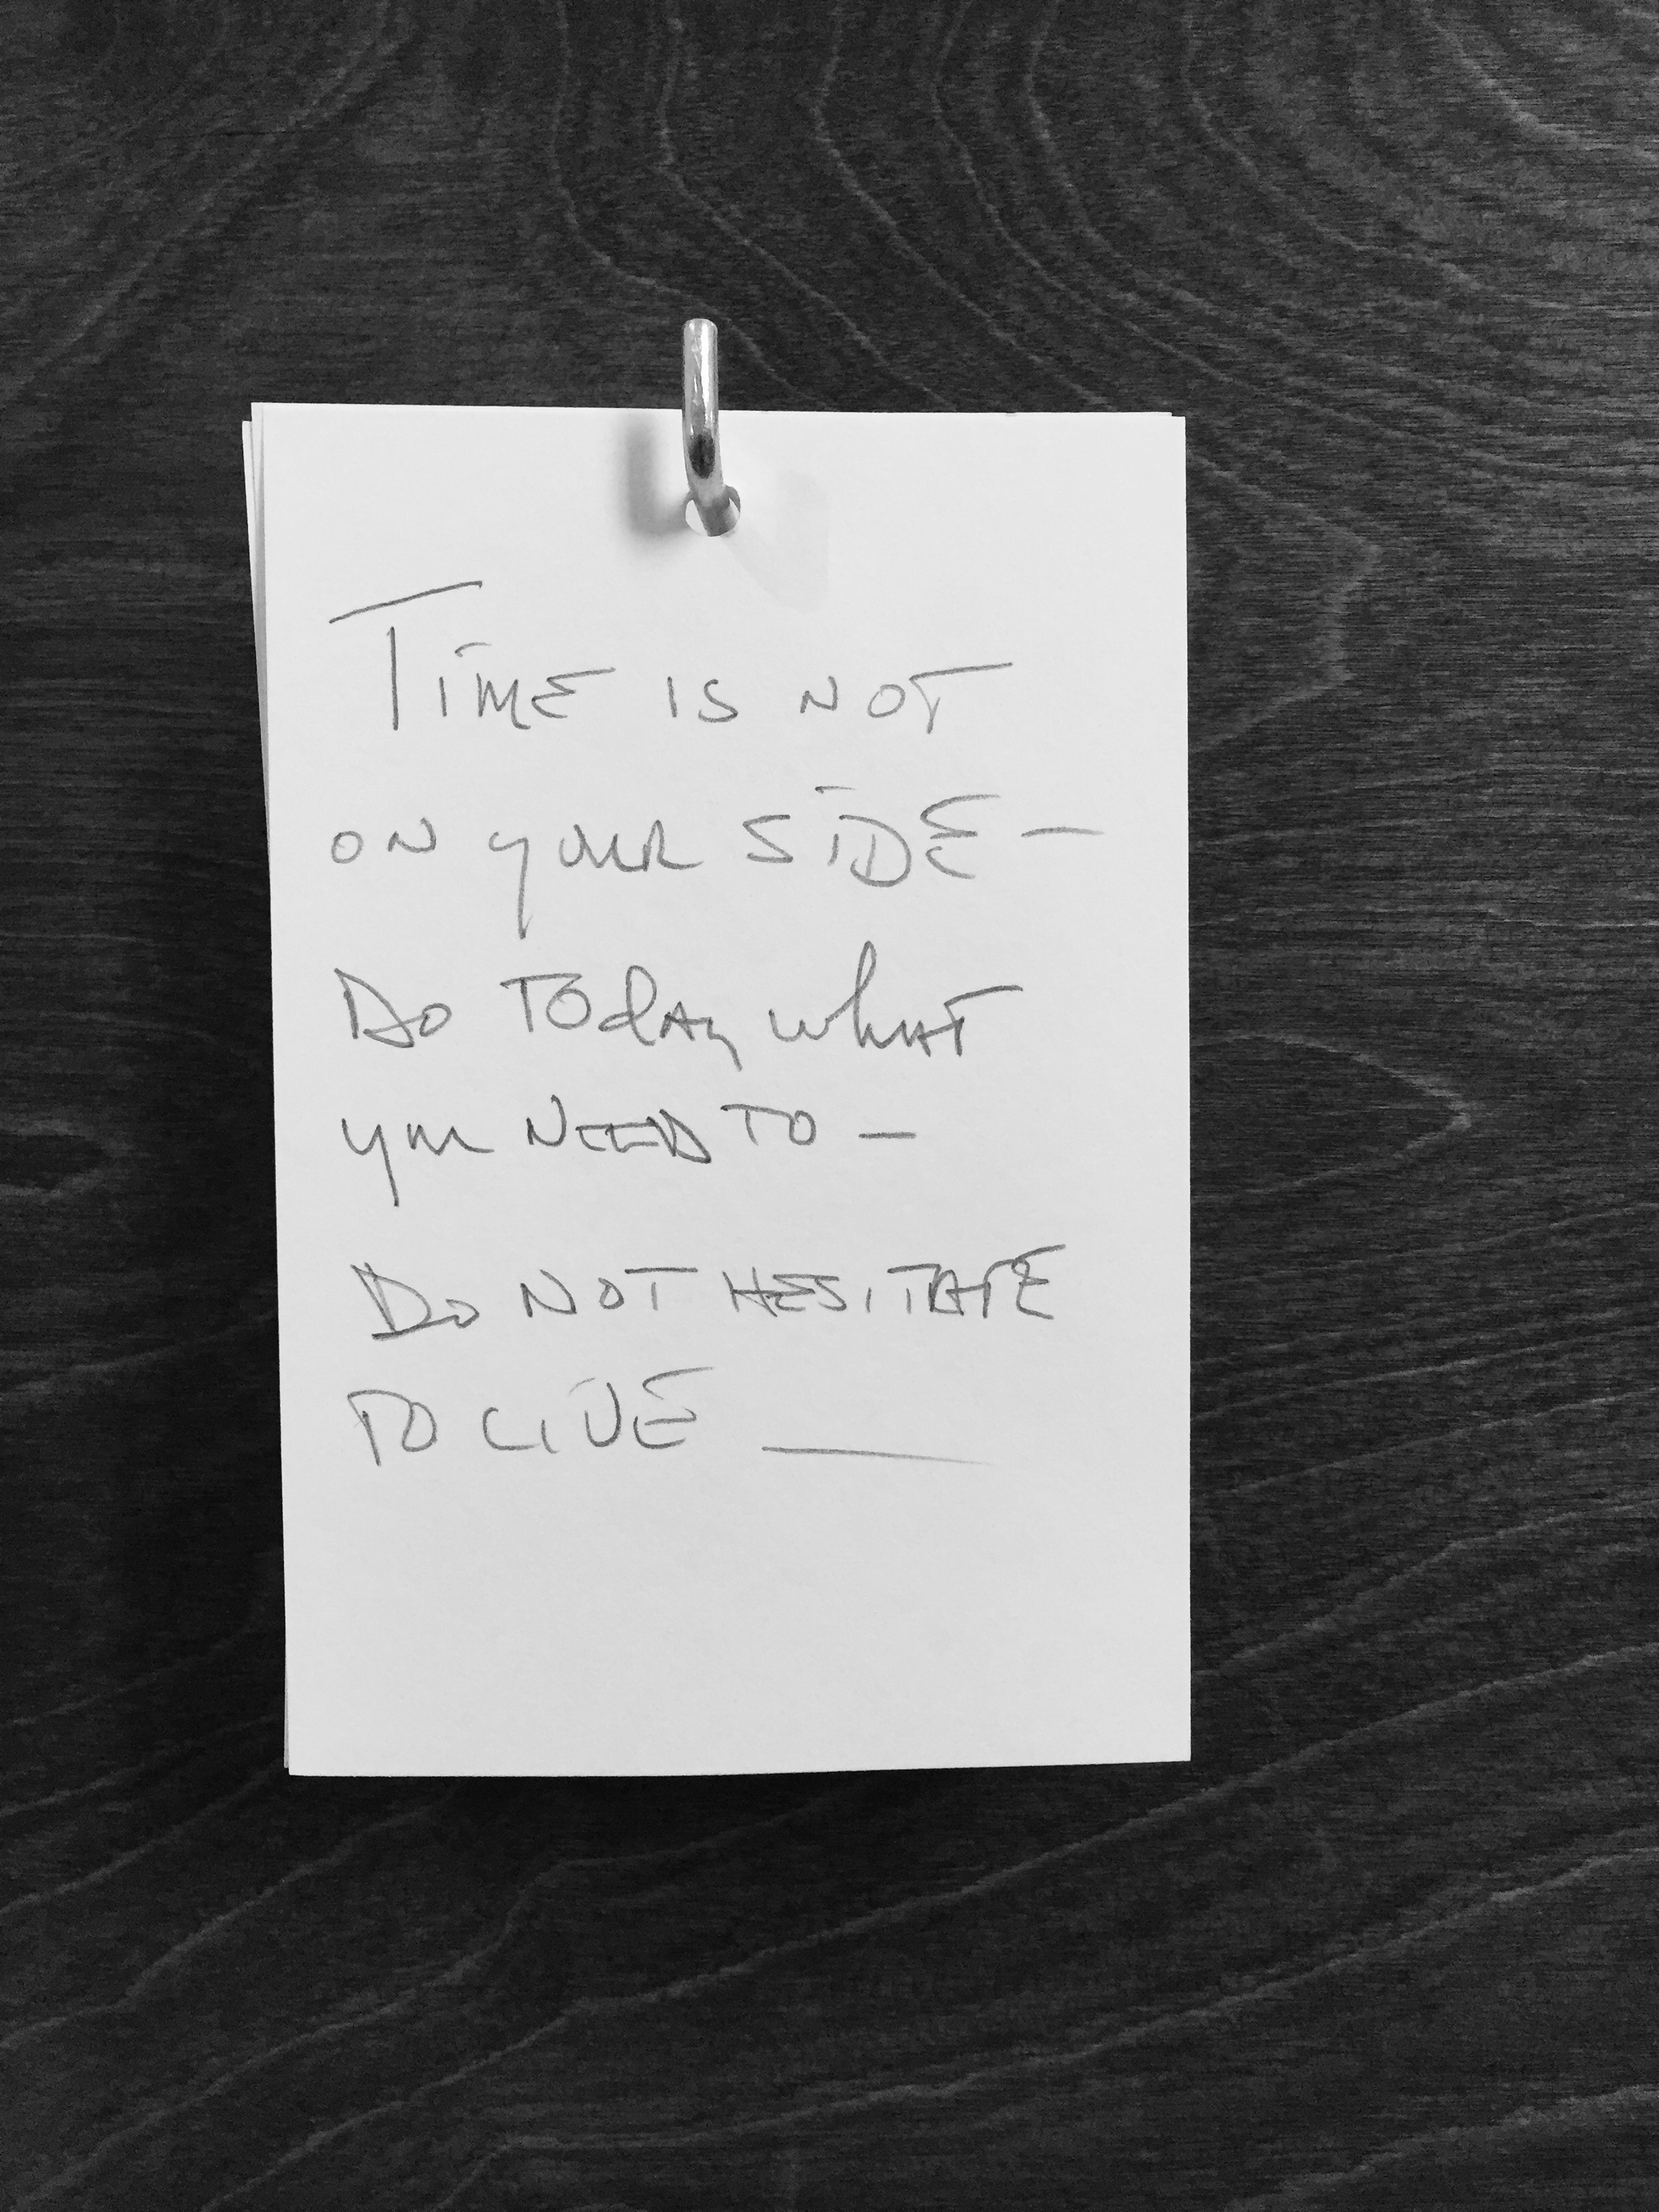 TIME IS NOT
ON YOUR SIDE —
DO TODAY WHAT
YOU NEED TO —
DO NOT HESITATE
TO LIVE —